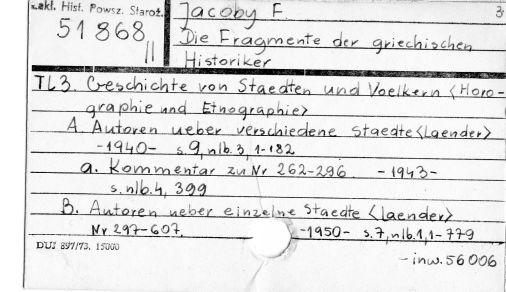 Zakł. Hist. Powsz. Staroż.
51868
II
Jacoby F
3
Die Fragmente der griechischen
Historiker
TL3. Geschichte von Staedten und Voelkern <Horo-
graphie und Etnographie>
A. Autoren ueber verschiedene Staedte <Laender>
-1940- s. 9, nlb. 3, 1-182
a. Kommentar zu Nr 262-296 -1943-
s. nlb. 4, 399
B. Autoren ueber einzelne Staedte <Laender>
Nr 297-607. -1950- s. 7, nlb. 1, 1-779
DUJ 897/73. 15000
-inw. 56006